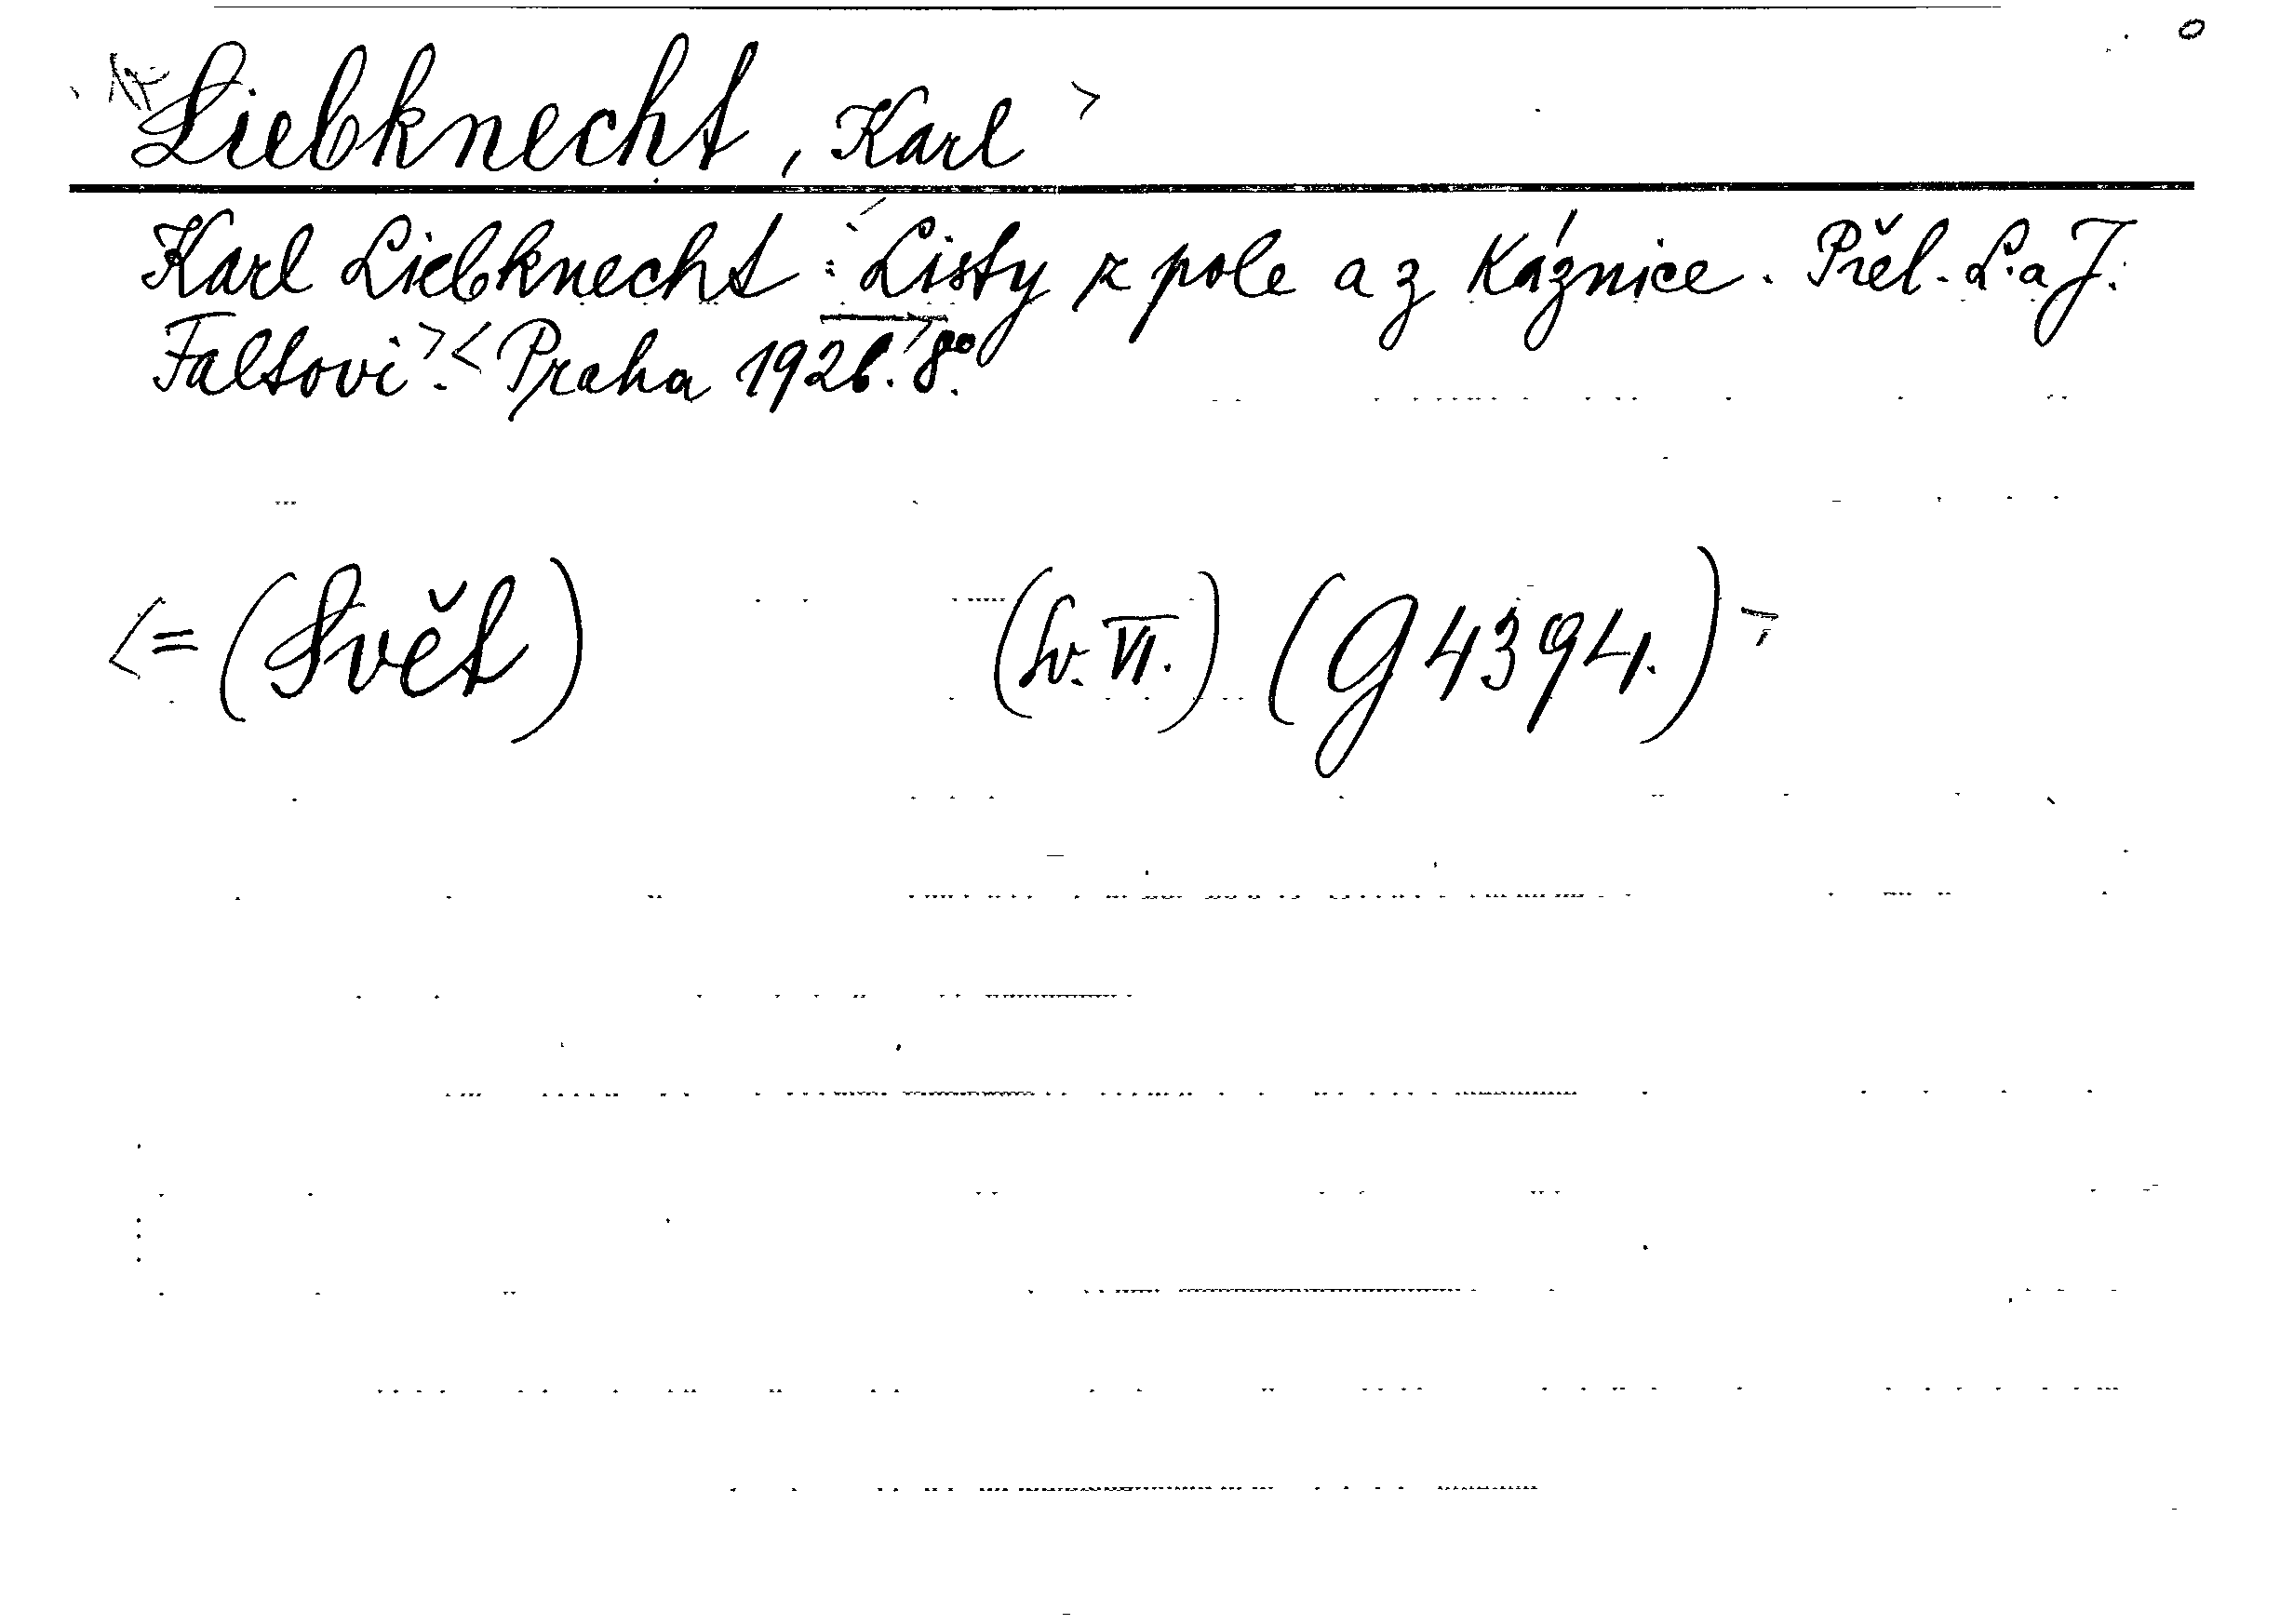 Liebknecht, Karl
Karl Liebknecht: Listy z pole a z káznice. Přel. L. a J.
Faltovi. Praha 1926. 8°.
= (Svět) (Sv. VI.) (G 4394.)